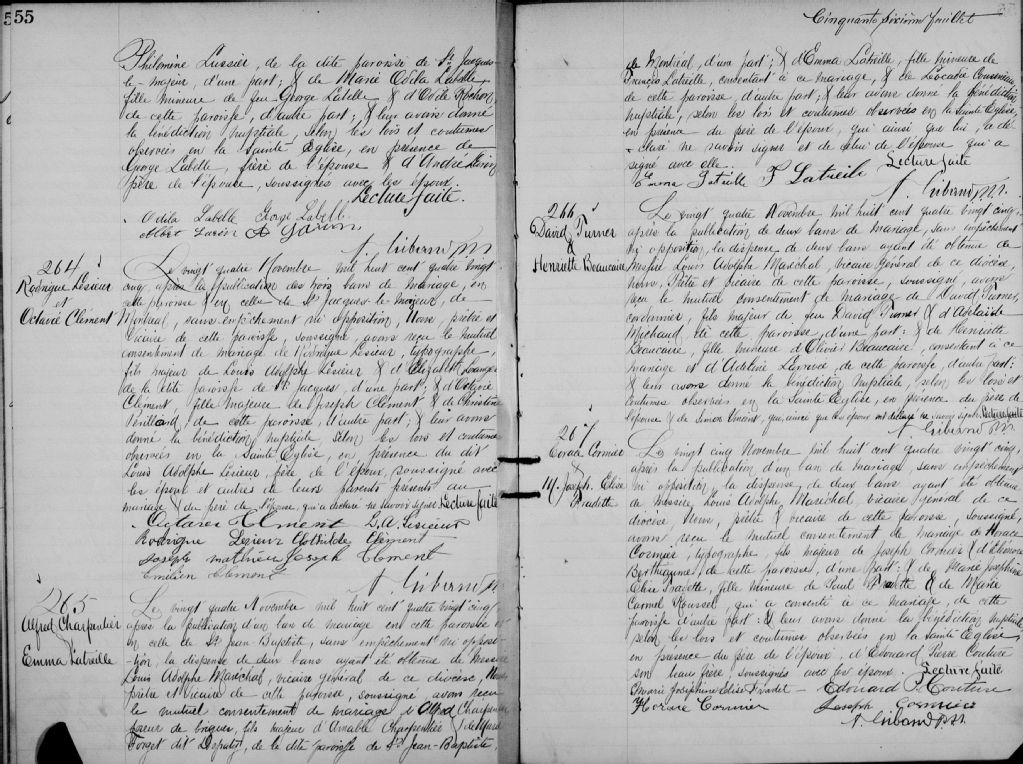 55
Philomène Lussier, de la dite paroisse de St Jacques-
le-majeur, d'une part; & de Marie Odila Labelle,
fille mineure de feu George Labelle & d'Odile Rochon,
de cette paroisse, d'autre part; & leur avons donné
la bénédiction nuptiale, selon les lois et coutumes
observées en la Sainte Église, en présence de
George Labelle, frère de l'épouse & d'André
père de l'époux, soussignés avec les époux.
Lecture faite.
Odila Labelle George Labelle
Albert
264
Rodrigue Lésieur
et
Octavie Clément
Le vingt quatre Novembre mil huit cent quatre vingt
cinq, après la publication des trois bans de mariage, en
cette paroisse & en celle de St Jacques-le-majeur, de
Montréal, sans empêchement ni opposition, Nous, prêtre et
vicaire de cette paroisse, soussigné avons reçu le mutuel
consentement de mariage de Rodrigue Lésieur, typographe,
fils majeur de Louis Adolphe Lésieur & d'Elizabeth
de la dite paroisse de St Jacques, d'une part; & d'Octavie
Clément, fille majeure de Joseph Clément & de Christine
de cette paroisse, d'autre part; & leur avons
donné la bénédiction nuptiale selon les lois et coutumes
observées en la Sainte Église, en présence du dit
Louis Adolphe Lésieur, père de l'époux, soussigné avec
les époux et autres de leurs parents présents au
mariage & du père de l'épouse, qui a déclaré ne savoir signer. Lecture faite
Clément L. A. Lesieur
Rodrigue Lesieur Clothilde Clément
Joseph Mathieu Joseph Clement
Emélien Clement
265
Alfred Charpentier
&
Emma Latreille
Le vingt quatre Novembre mil huit cent quatre vingt cinq
après la publication d'un ban de mariage en cette paroisse et
en celle de St Jean Baptiste, sans empêchement ni opposi-
tion, la dispense de deux bans ayant été obtenue de Messire
Louis Adolphe Maréchal, vicaire général de ce diocèse, Nous
prêtre et vicaire de cette paroisse, soussigné avons reçu
le mutuel consentement de mariage d'Alfred Charpentier
poseur de briques, fils majeur d'Amable Charpentier & de
Forget dit Depatis, de la dite paroisse de St Jean-Baptiste,
Cinquante sixième feuillet
de Montréal, d'une part; & d'Emma Latreille, fille mineure de
François Latreille, consentant à ce mariage, & de Léocadie
de cette paroisse, d'autre part; & leur avons donné la bénédiction
nuptiale, selon les lois et coutumes observées en la Sainte Église,
en présence du père de l'époux, qui ainsi que lui, a dé-
claré ne savoir signer et de celui de l'épouse qui a
signé avec elle. Lecture faite
Emma Latreille F Latreille
266
David Turner
&
Henriette Beaucaire
Le vingt quatre Novembre mil huit cent quatre vingt cinq,
après la publication de deux bans de mariage, sans empêchement
ni opposition, la dispense de deux bans ayant été obtenue de
messire Louis Adolphe Maréchal, vicaire général de ce diocèse,
Nous, Prêtre et vicaire de cette paroisse, soussigné, avons
reçu le mutuel consentement de mariage de David Turner,
cordonnier, fils majeur de feu David Turner & d'Adelaide
Michaud, de cette paroisse, d'une part: & de Henriette
Beaucaire, fille mineure d'Olivier Beaucaire, consentant à ce
mariage et d'Adeline de cette paroisse, d'autre part:
& leur avons donné la bénédiction nuptiale, selon les lois et
coutumes observées en la Sainte Église, en présence du père de
l'épouse & de Simon Vincent, qui, ainsi que les époux ont déclaré ne savoir signer. Lecture faite
267
Horace Cormier
&
M. Joseph. Elise
Pradette
Le vingt cinq Novembre mil huit cent quatre vingt cinq,
après la publication d'un ban de mariage, sans empêchement
ni opposition, la dispense de deux bans ayant été obtenue
de messire Louis Adolphe Maréchal, vicaire général de ce
diocèse Nous, prêtre & vicaire de cette paroisse, soussigné,
avons reçu le mutuel consentement de mariage de Horace
Cormier, typographe, fils majeur de Joseph Cormier & d'Eléonore
Berthiaume, de cette paroisse, d'une part: & de Marie Josephine
Elise Pradette, fille mineure de Paul Pradette & de Marie
Carmel Roussel, qui a consenti à ce mariage, de cette
paroisse d'autre part: & leur avons donné la bénédiction nuptiale
selon les lois et coutumes observées en la Sainte Église
en présence du père de l'époux, d'Edouard Pierre Couture
son beau frère, soussignés avec les époux. Lecture faite
Marie Josephine Elise Pradet Edouard P Couture
Horace Cormier Joseph Cormier